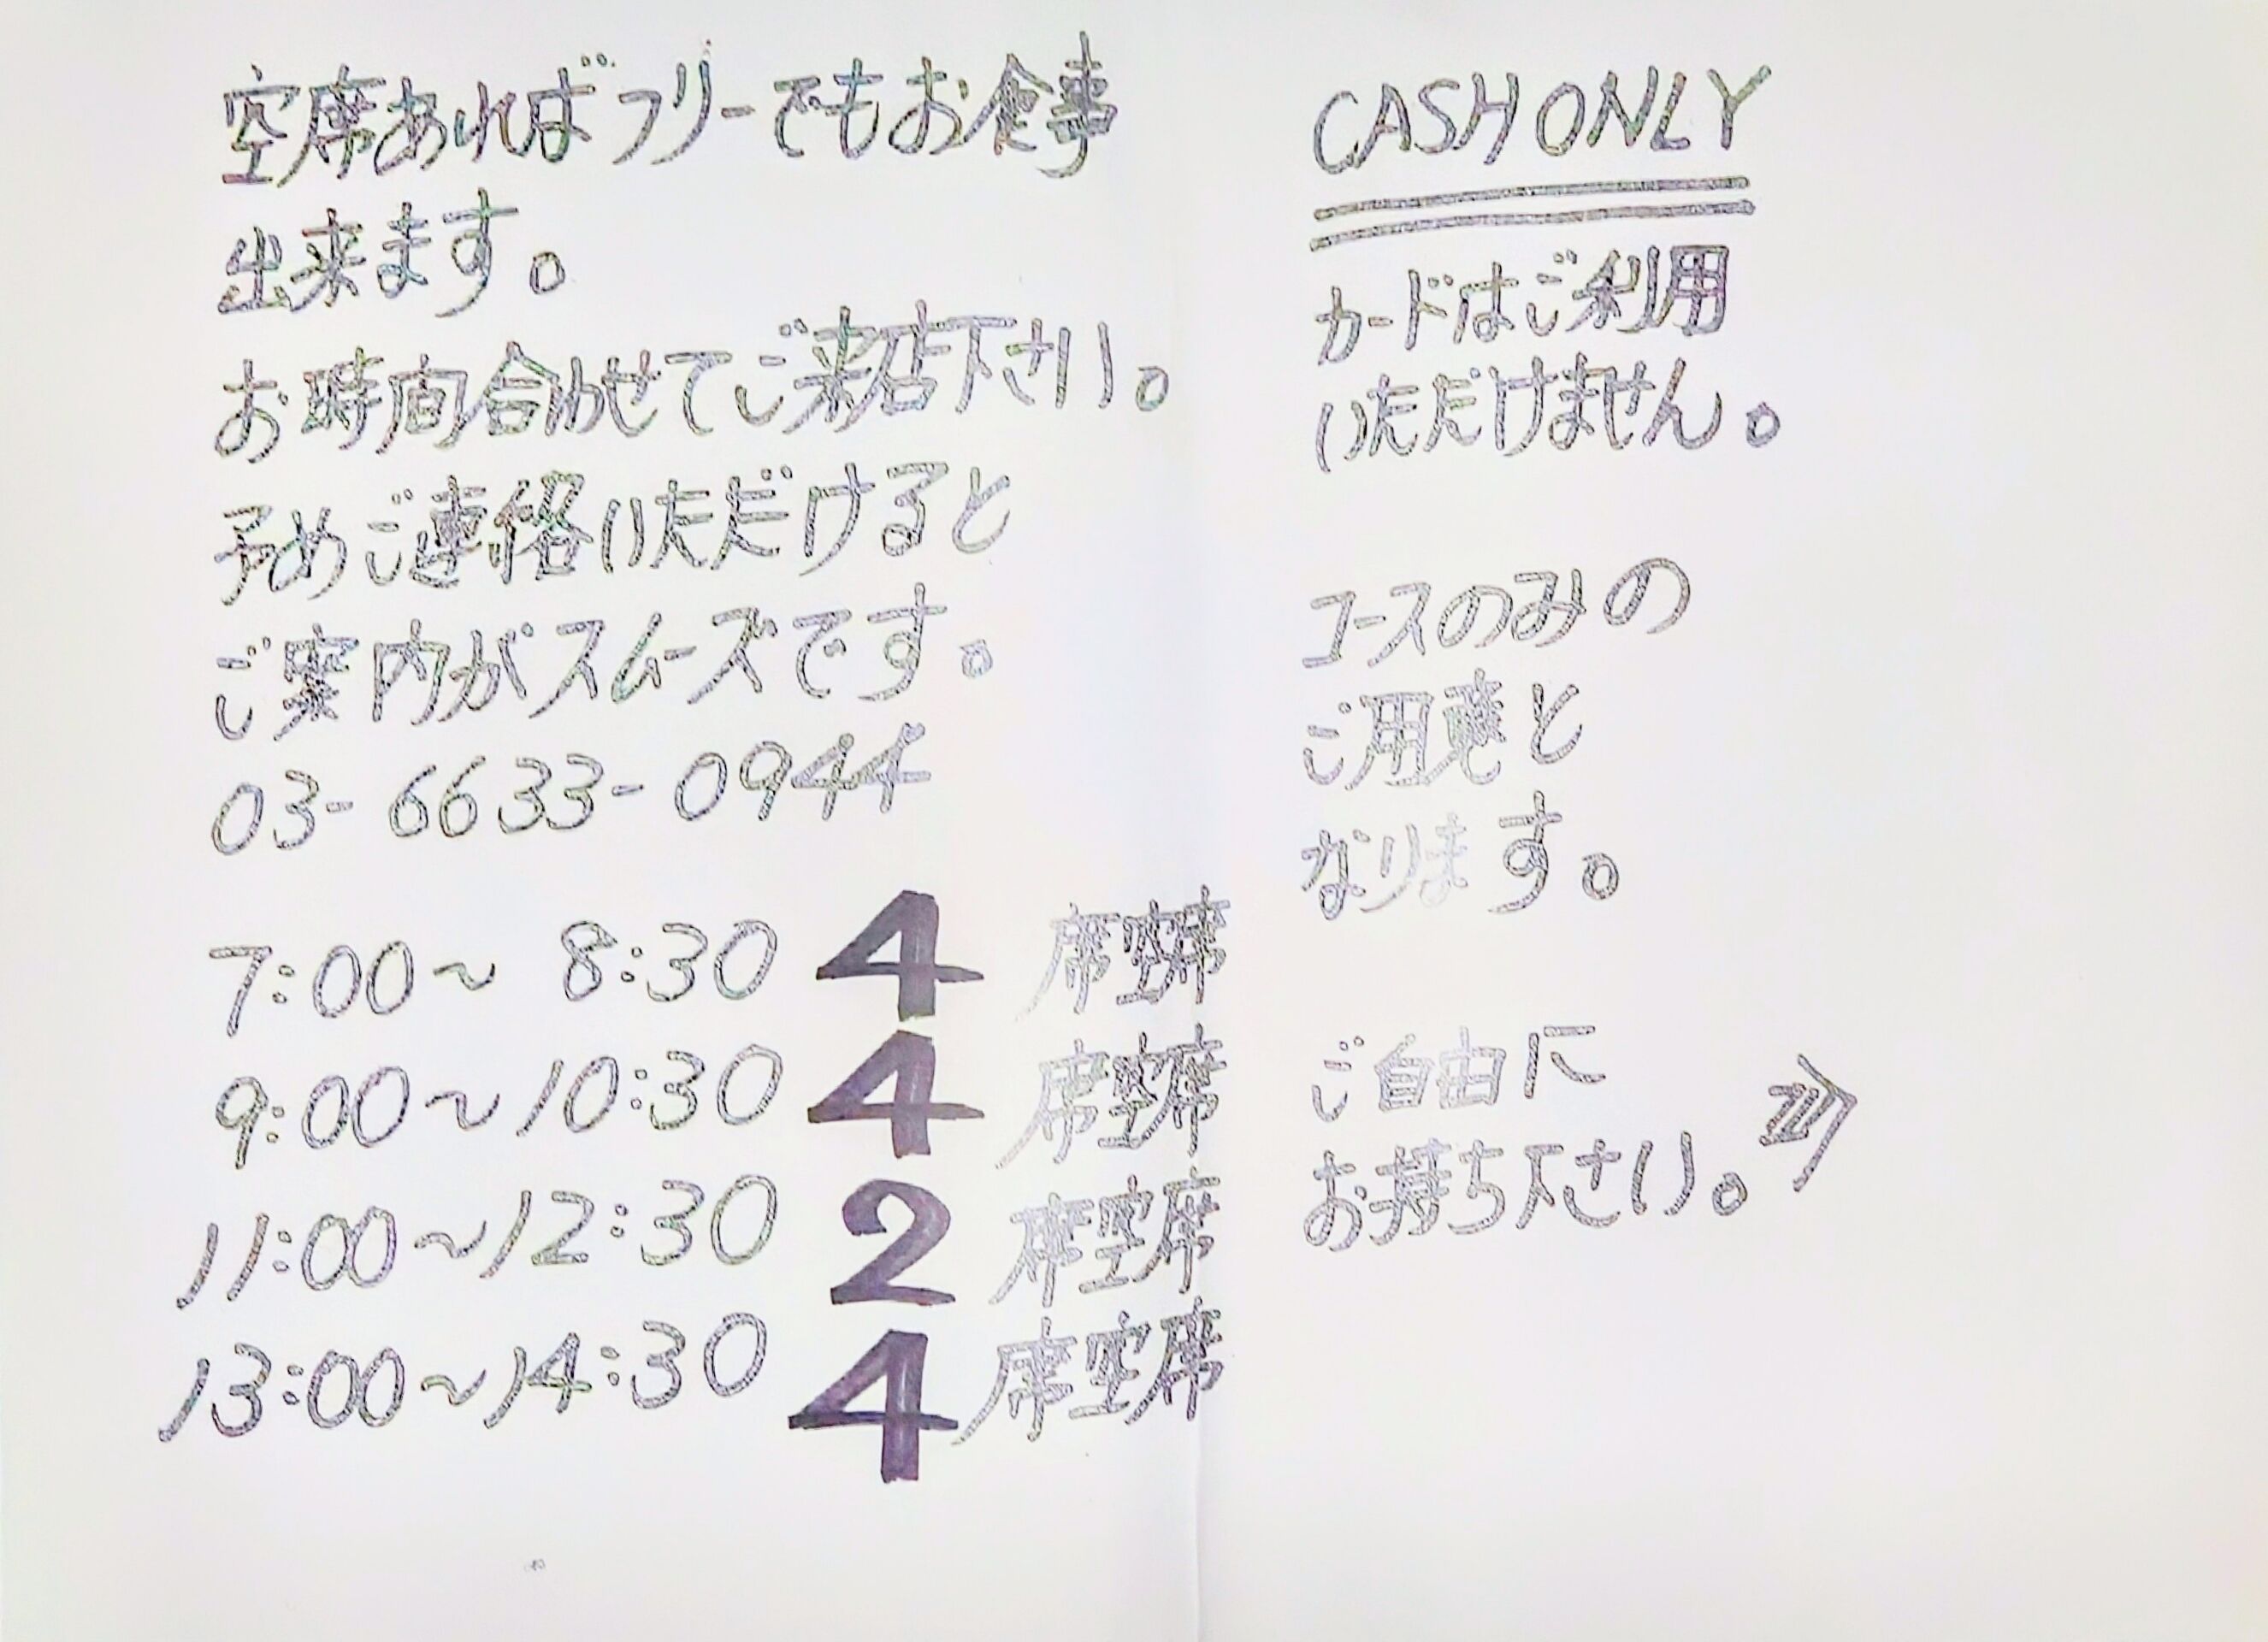 空席あればフリーでもお食事
出来ます。
お時間合わせてご来店下さい。
予めご連絡いただけると
ご案内がスムーズです。
03-6633-0944
7:00～8:30 4 席空席
9:00～10:30 4 席空席
11:00～12:30 2 席空席
13:00～14:30 4 席空席
CASH ONLY
カードはご利用
いただけません。
コースのみの
ご用意と
なります。
ご自由に
お持ち下さい。